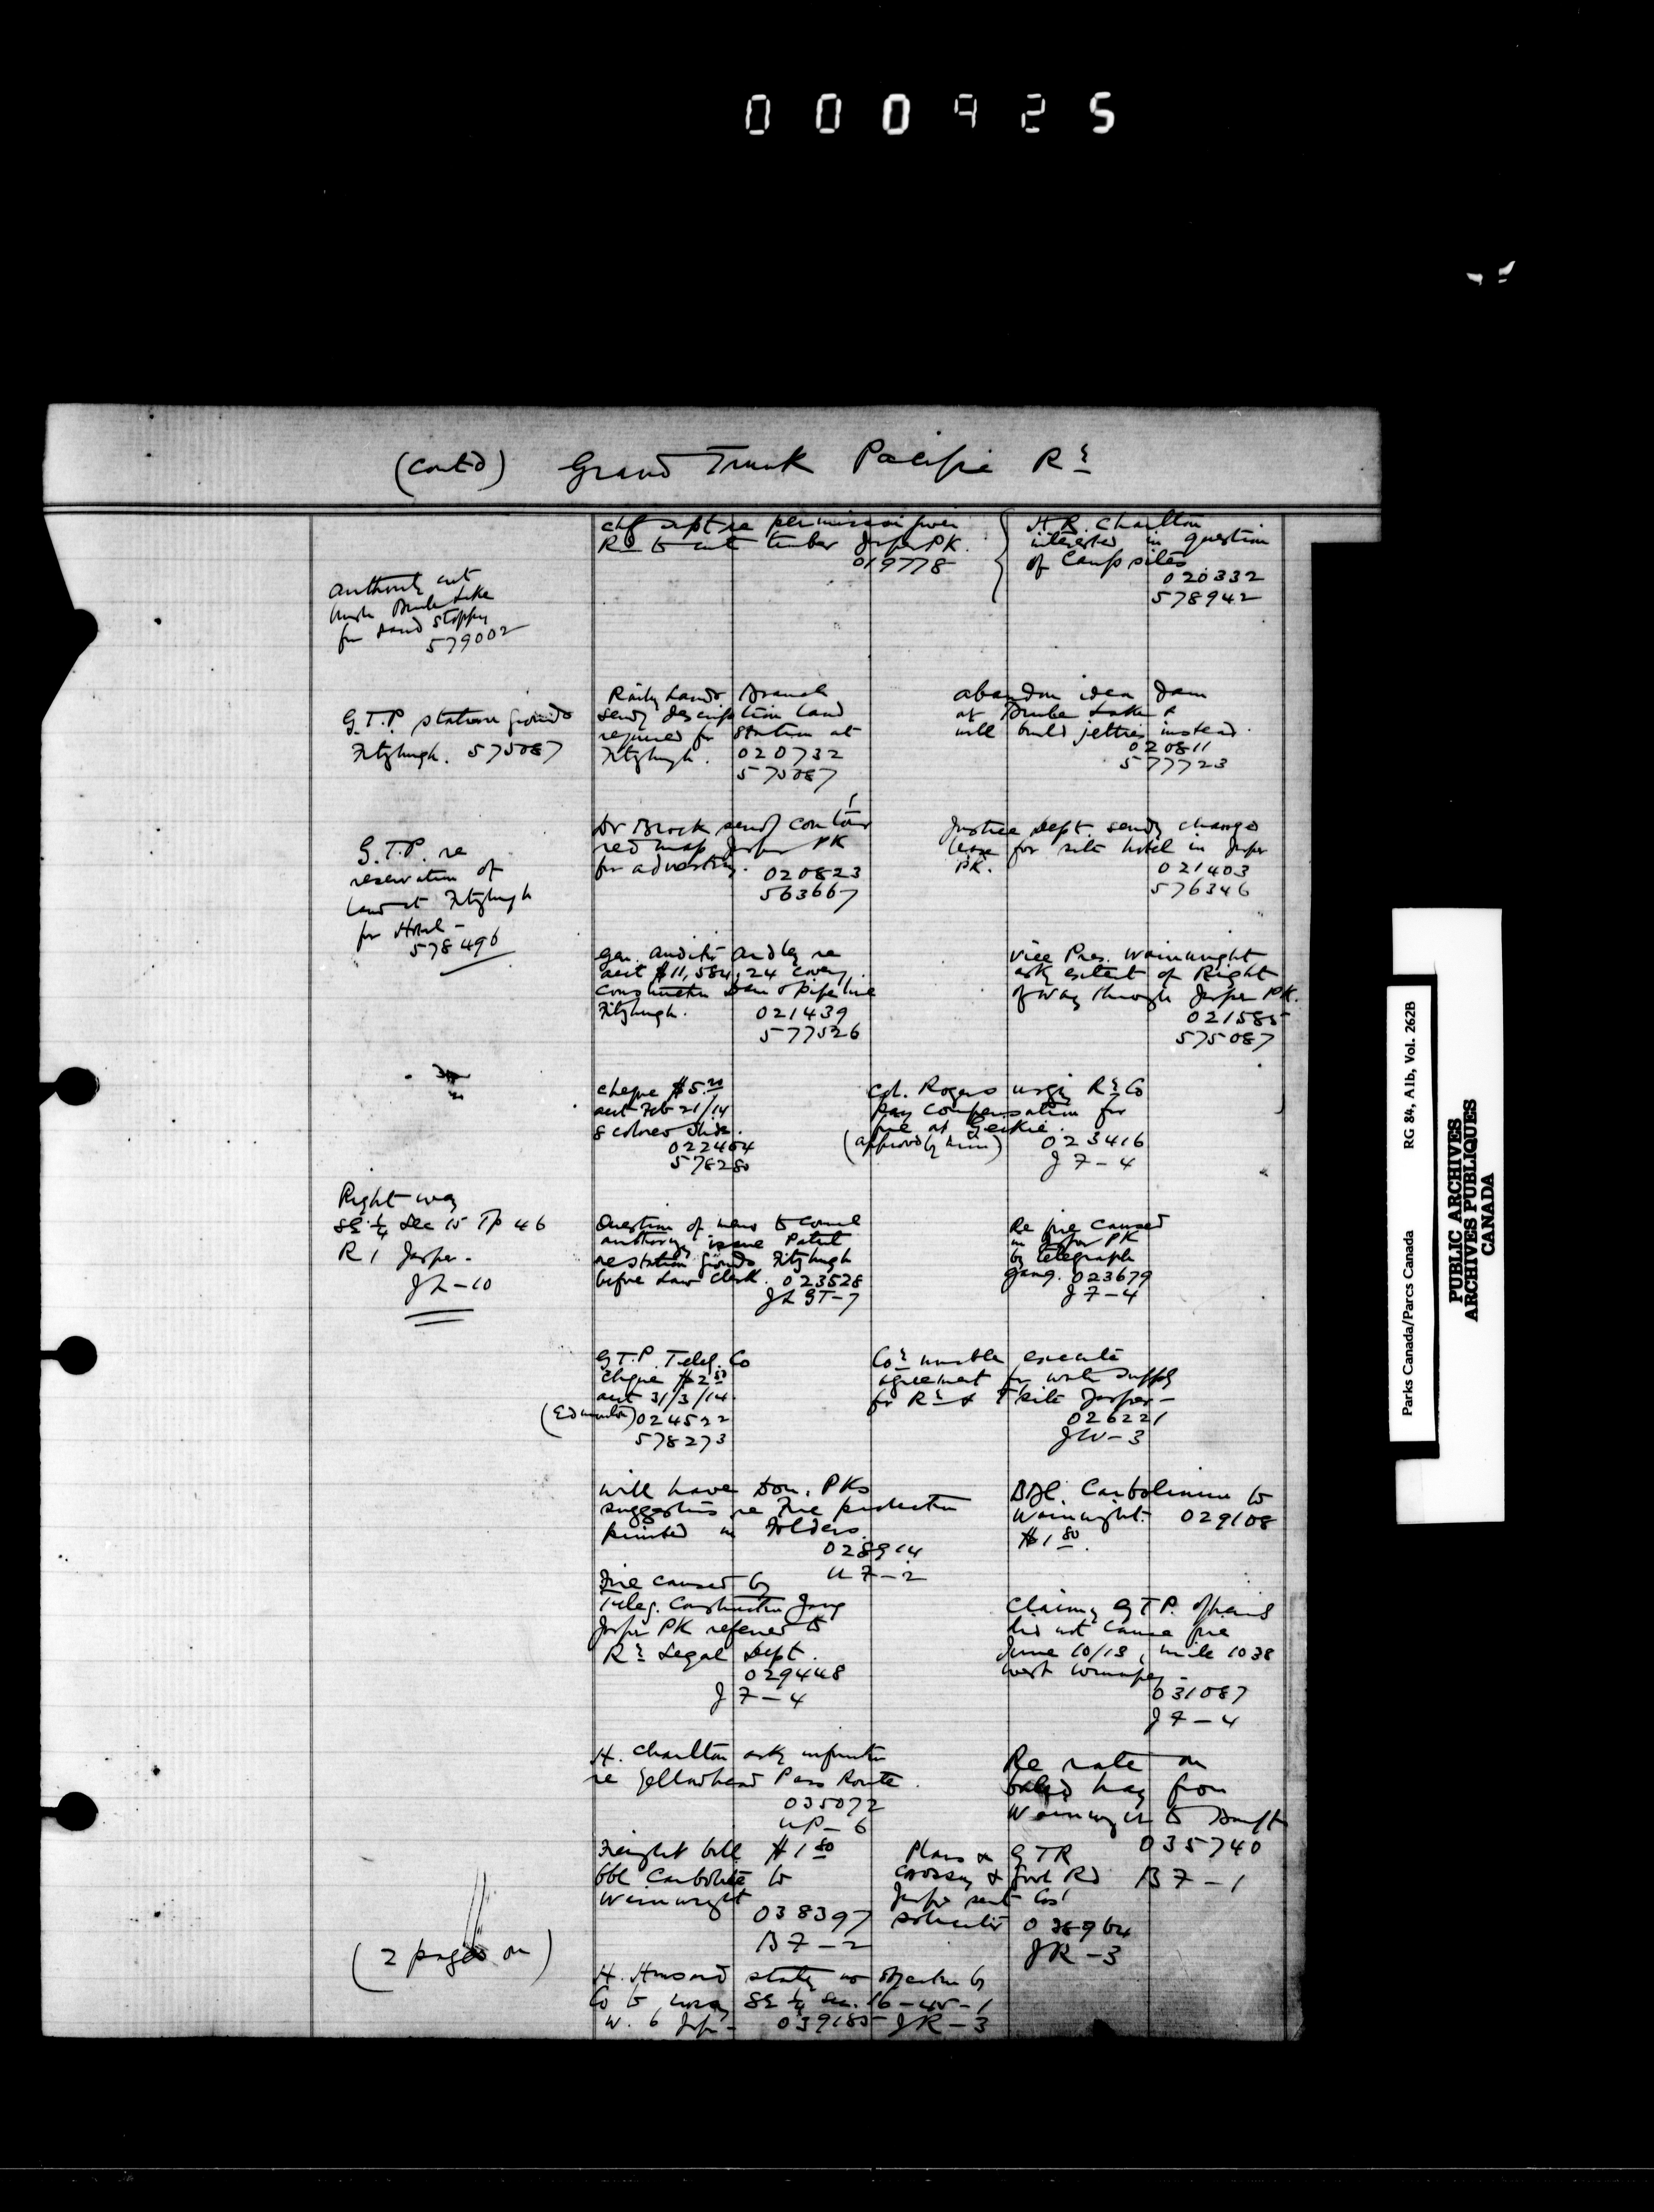 000925
(Cont'd) Grand Trunk Pacific Ry
authority cut
brush
Lake
for sand stopping
579002
G.T.P. station grounds
Fitzhugh. 575087
G.T.P. re
reservation of
land at Fitzhugh
for Hotel -
578496
Right way
SE 1/4 Sec 15 Tp 46
R 1 Jasper -
JL-10
(2 pages on)
permission given
Ry to cut timber Jasper PK.
019778
H.R. Charlton
interested in question
of Camp sites
020332
578942
Railway Lands Branch
sends description land
required for station at
Fitzhugh. 020732
575087
abandon idea dam
at Lake &
will build jetties instead.
020811
577723
Dr Brock sends contour
red map Jasper PK
for advertising. 020823
563667
Justice Dept. sends changes
lease for site hotel in Jasper
PK.
021403
576346
Gen. Auditor
acct $11,584.24 covering
construction Dam & pipe line
Fitzhugh. 021439
577526
Vice Pres. Wainwright
asks extent of Right
of way through Jasper PK.
021585
575087
cheque $5.
acct Feb 21/14
8 colored slides.
022464
578280
Col. Rogers urges Ry Co
pay compensation for
fire at Geikie.
(approved by him) 023416
J7-4
Question of
authorizing issue Patent
re station grounds Fitzhugh
before Law Clerk. 023528
JL GT-7
Re fire caused
in Jasper PK
by telegraph
gang. 023679
J7-4
G.T.P. Teleg. Co
cheque $2.
acct 31/3/14
(Edmonton) 024522
578273
Co'y unable execute
agreement for water supply
for Ry & T'site Jasper -
026221
JW-3
Will have Dom. PKs
suggestions re Fire protection
printed in Folders.
028914
U7-2
Bbl. Carbolineum to
Wainwright. 029108
$1.80.
Fire caused by
Teleg. Construction Gang
Jasper PK referred to
Ry Legal Dept.
029448
J7-4
Claims G.T.P. officials
did not cause fire
June 10/13, mile 1038
west Winnipeg -
031087
J7-4
H. Charlton asks information
re Yellowhead Pass Route.
035072
UP-6
Re rate on
baled hay from
Wainwright to Banff
035740
B7-1
Freight bill $1.80
bbl. to
Wainwright
038397
B7-2
Plans & GTR
crossing & Govt Rd
Jasper sent Cos'
solicitor 038964
JR-3
H. states no objection by
Co to SE 1/4 Sec. 16-45-1
W. 6 Jasper - 039185 JR-3
Parks Canada/Parcs Canada RG 84, A1b, Vol. 262B
PUBLIC ARCHIVES
ARCHIVES PUBLIQUES
CANADA